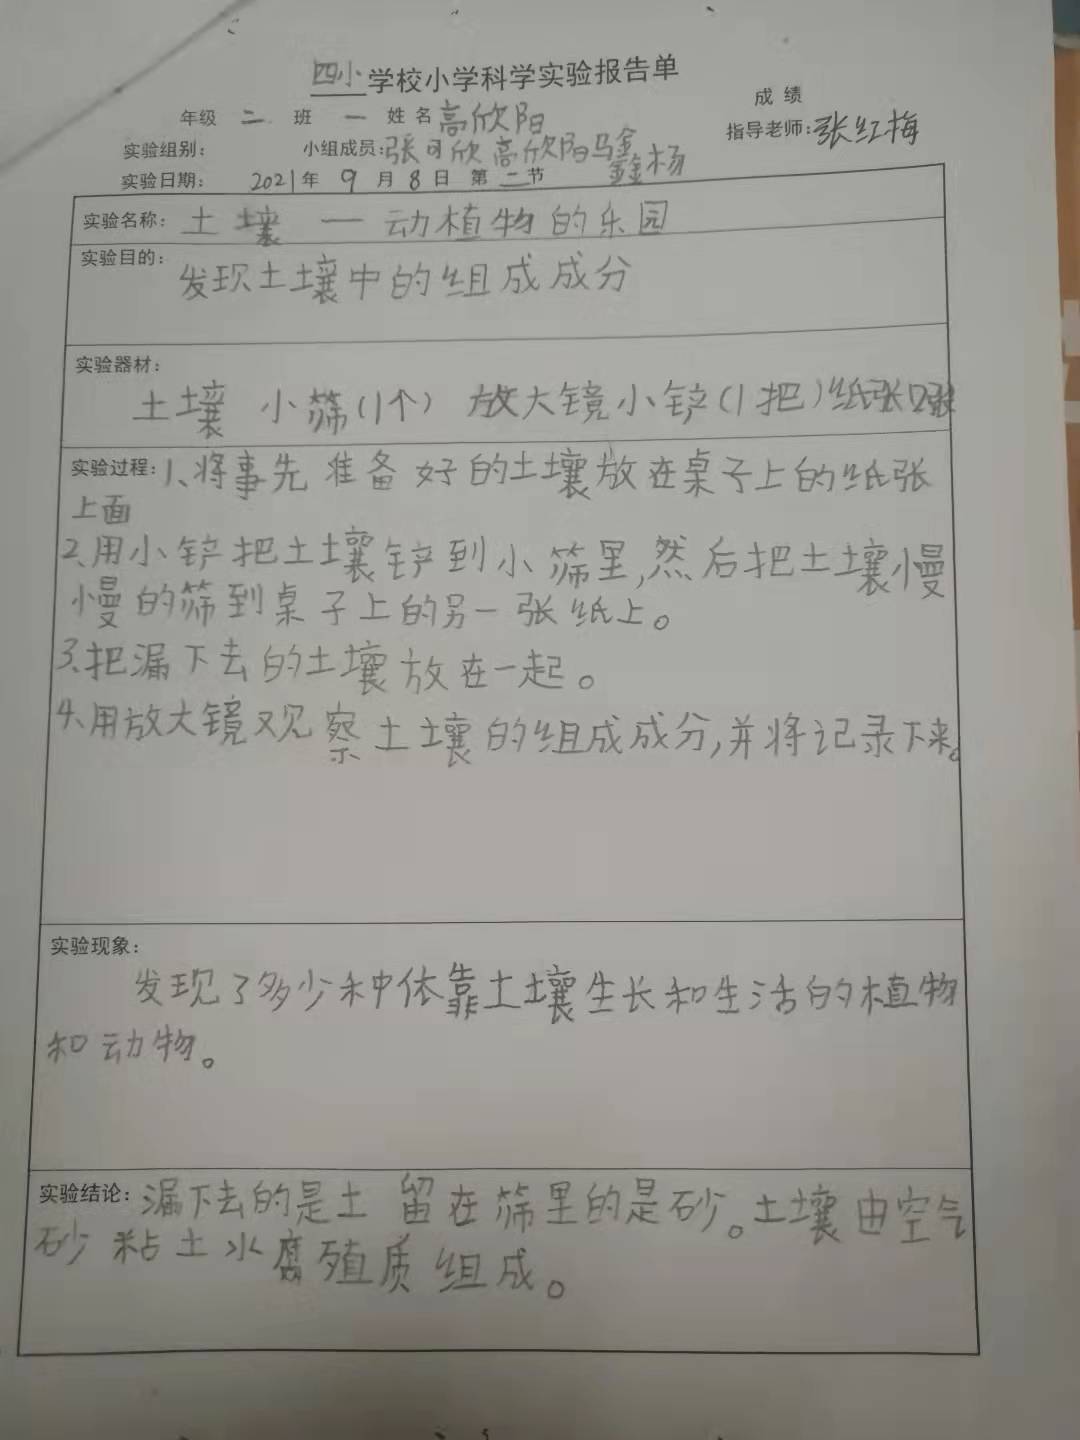 四小学校小学科学实验报告单
成绩
年级 二 班 一 姓名 高欣阳
指导老师:张红梅
实验组别: 小组成员:张可欣 高欣阳 马鑫 鑫杨
实验日期: 2021年 9 月 8 日 第 二 节
实验名称: 土壤 — 动植物的乐园
实验目的: 发现土壤中的组成成分
实验器材:
土壤 小筛(1个) 放大镜 小铲(1把) 纸张
实验过程: 1、将事先准备好的土壤放在桌子上的纸张
上面
2、用小铲把土壤铲到小筛里,然后把土壤慢
慢的筛到桌子上的另一张纸上。
3、把漏下去的土壤放在一起。
4、用放大镜观察土壤的组成成分,并将记录下来。
实验现象:
发现了多少种依靠土壤生长和生活的植物
和动物。
实验结论: 漏下去的是土 留在筛里的是砂。土壤由空气
砂 粘土 水 腐殖质组成。